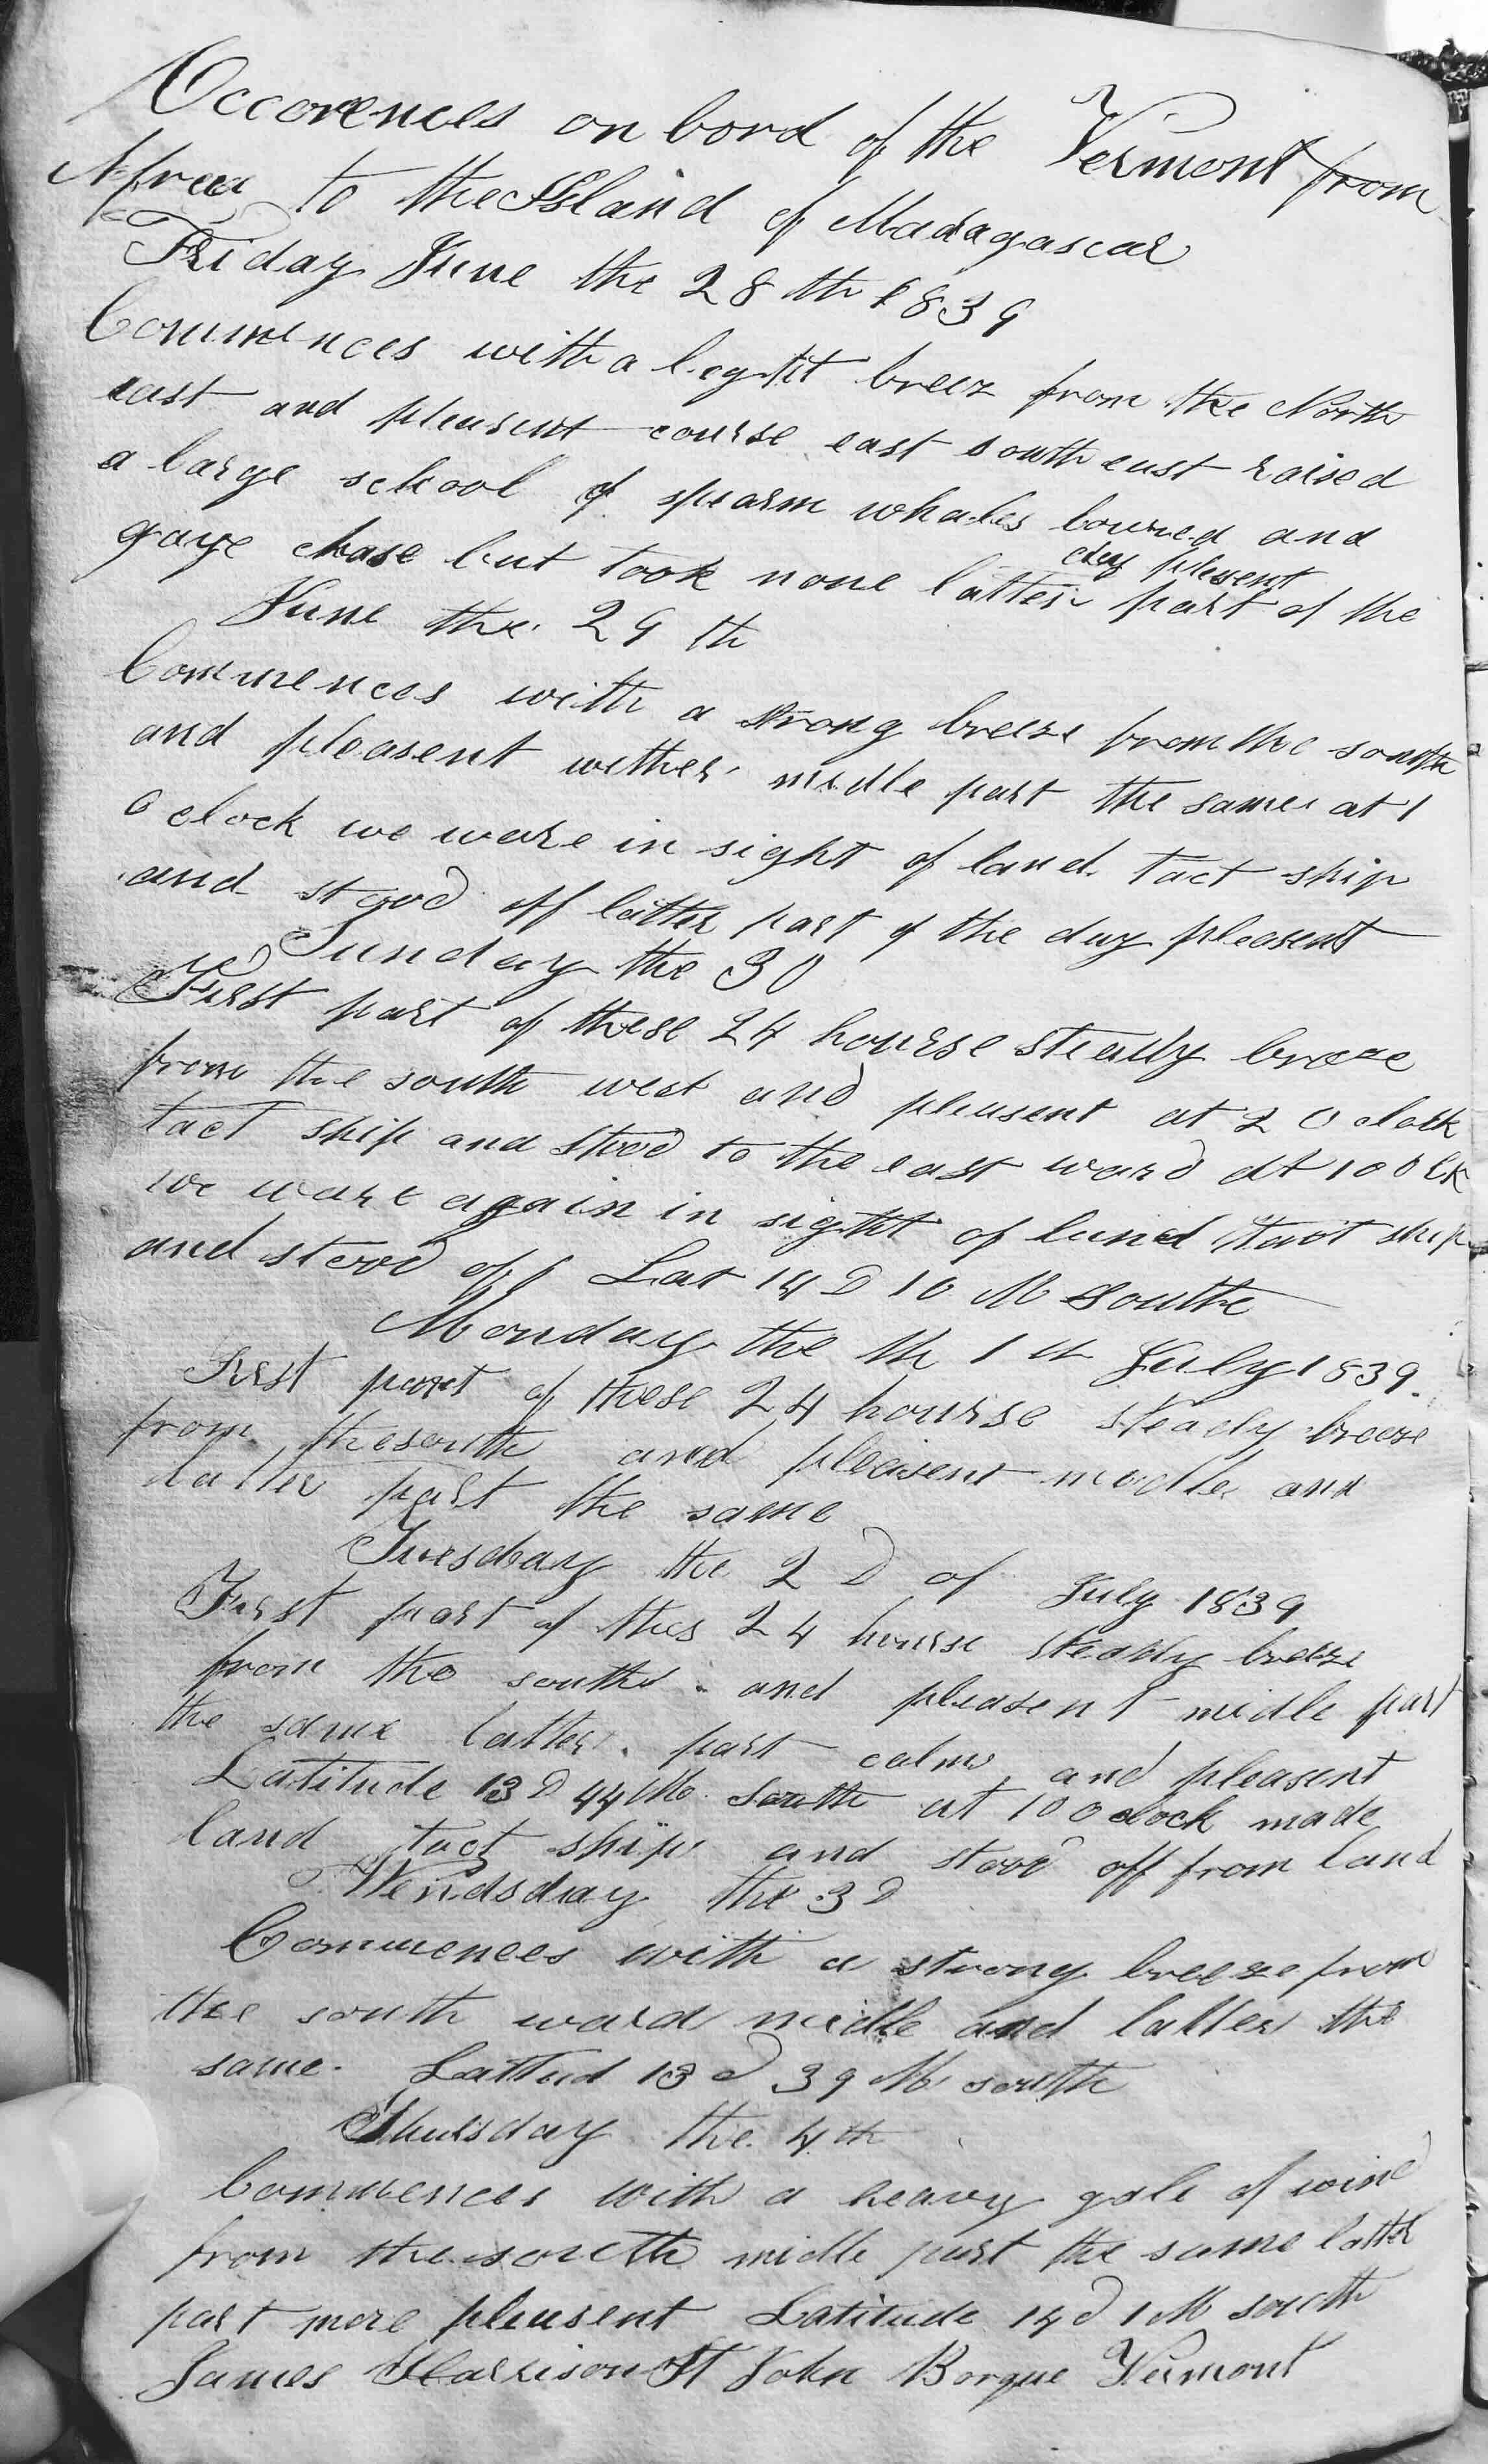 Occorences on bord of the Vermont from
Africa to the Island of Madagascar
Friday June the 28 th 1839
Commences with a leght breez from the North
east and pleasent course east south east raised
a large school of spearm whales lowred and
gave chase but took none latter part of the
day plesent
June the 29 th
Commences with a strong breeze from the south
and pleasent wether midle part the same at 1
o clock we ware in sight of land tact ship
and stood off latter part of the day pleasent
Sunday the 30
First part of these 24 hourse steady breze
from the south west and pleasent at 2 O clock
tact ship and stood to the east ward at 10 O Clk
we ware again in sight of land tact ship
and stood off Lat 14 D 10 M South
Monday the th 1 st July 1839.
First part of these 24 hourse steady breeze
from the south and pleasent midle and
latter part the same
Tuesday the 2 D of July 1839
First part of thes 24 hourse steady breeze
from the south and pleasent midle part
the same latter part calm and pleasent
Latitude 13 D 44 M South at 10 O clock made
land tact ship and stood off from land
Wendsday the 3 D
Commences with a strong breeze from
the south ward midle and latter the
same. Lattud 13 d 39 M south
Thursday the 4 th
Commences with a heavy gale of wind
from the south midle part the same latter
part more pleasent Latitude 14 d 1 M south
James Harrison St John Borque Vermont